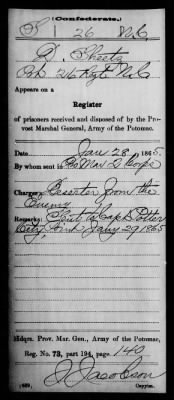 (Confederate.)
S 26 N.C.
D. Sheets
Co. 26 Regt. N.C.
Appears on a
Register
of prisoners received and disposed of by the Pro-
vost Marshal General, Army of the Potomac.
Date Jan 28, 1865.
By whom sent Pro Mar 2 Corps
Charges Deserter from the
Enemy
Remarks: Sent to Capt Potter
City Point Jany 29 1865
Hdqrs. Prov. Mar. Gen., Army of the Potomac,
Reg. No. 73, part 194, page 140
J. Jacobson
(639) Copyist.